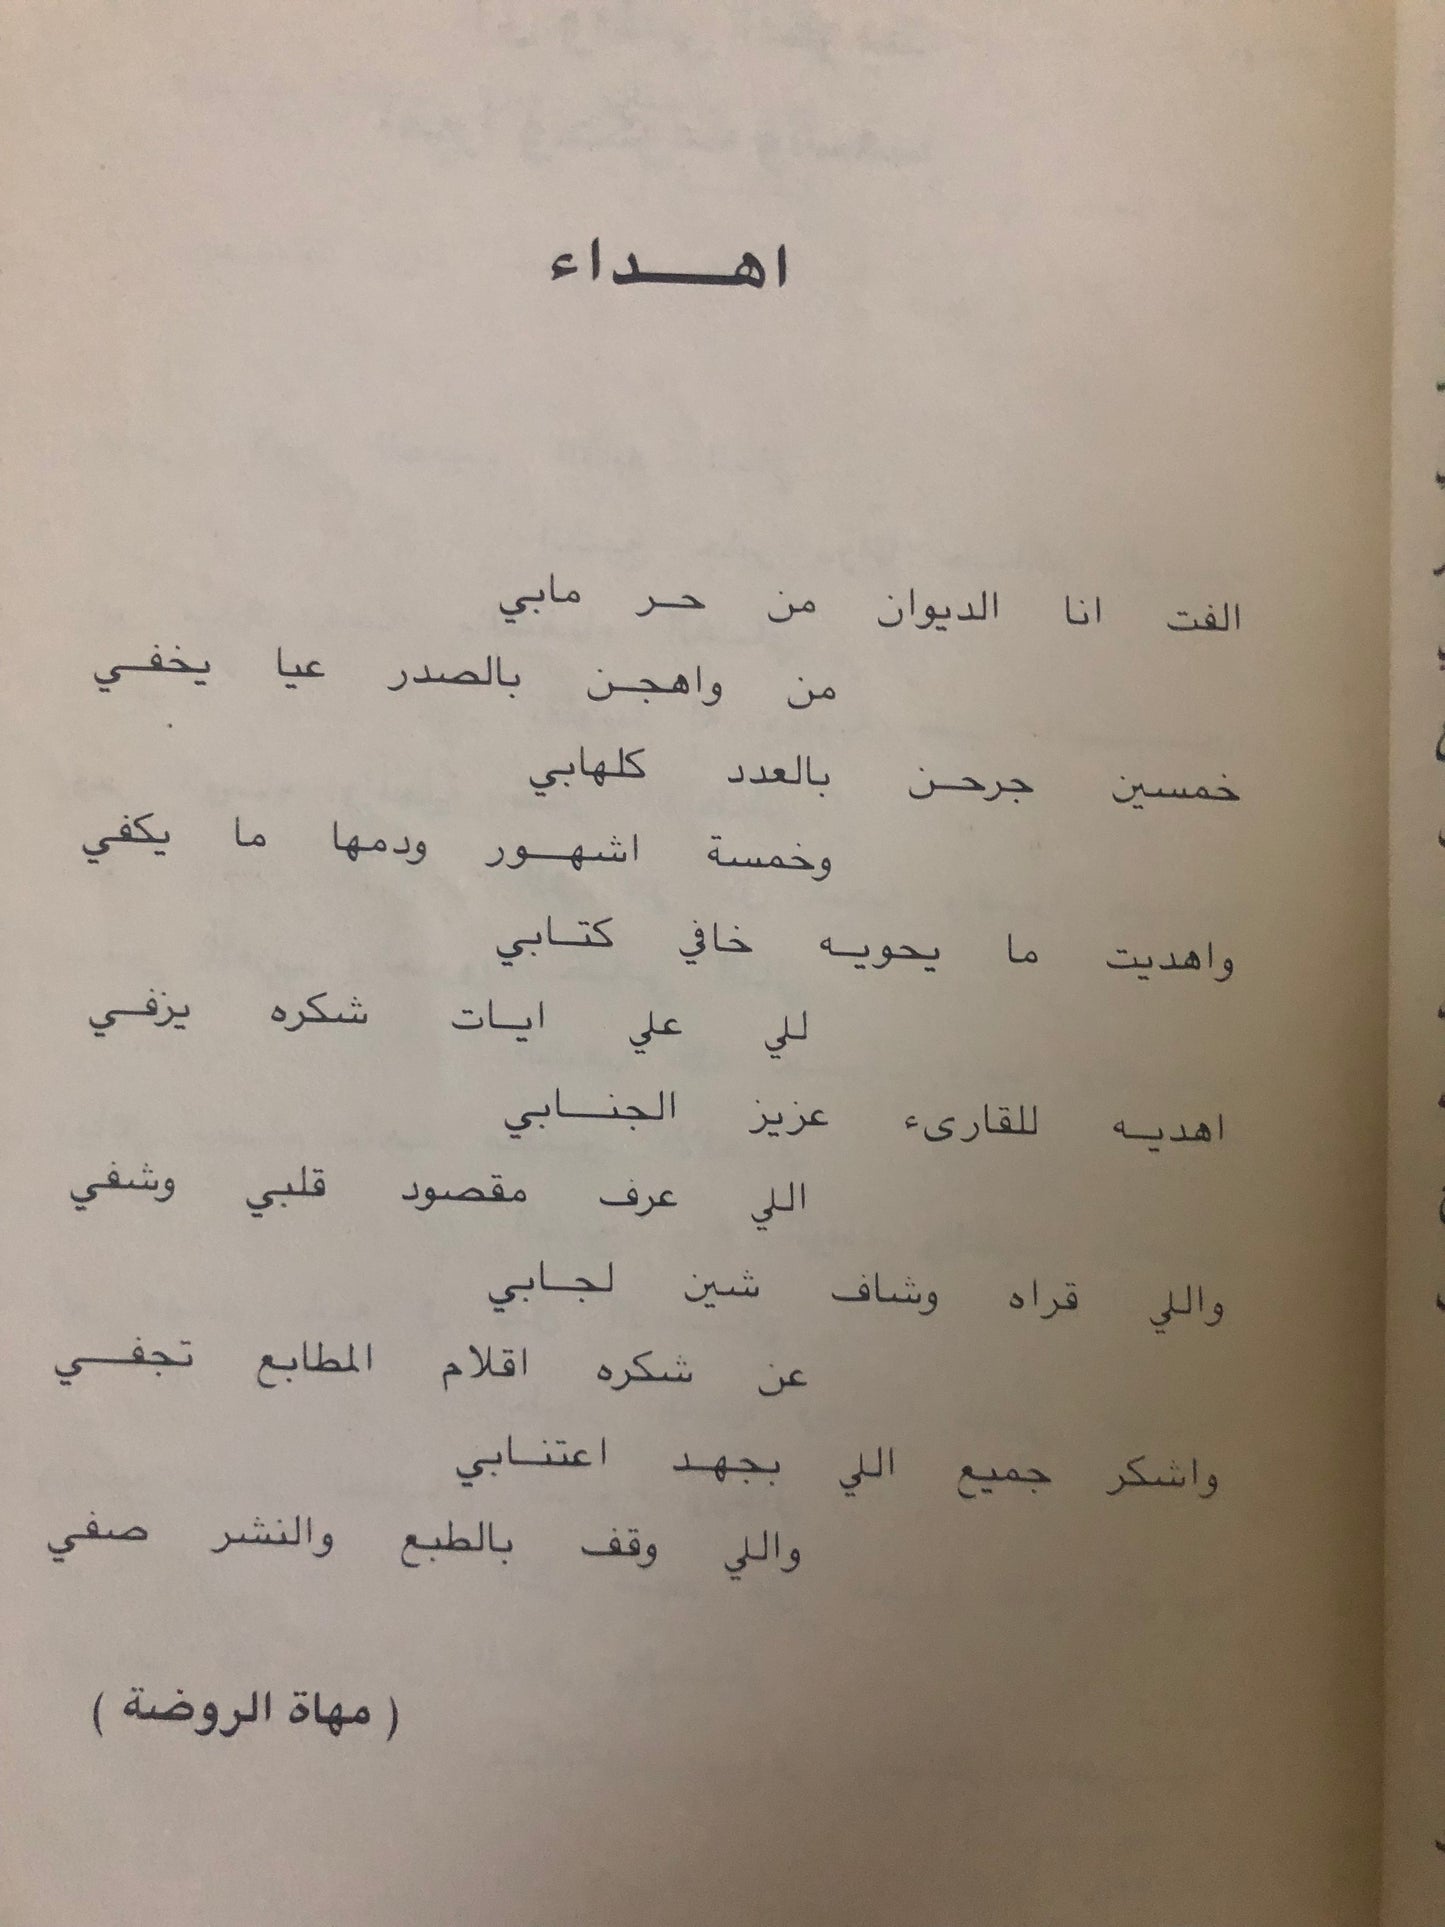 اهـــداء
الفت انا الديوان من حر مابي
من واهجن بالصدر عيا يخفي
خمسين جرحن بالعدد كلهابي
وخمسة اشهور ودمها ما يكفي
واهديت ما يحويه خافي كتابي
للي علي ايات شكره يزفي
اهديه للقارىء عزيز الجنابي
اللي عرف مقصود قلبي وشفي
واللي قراه وشاف شين لجابي
عن شكره اقلام المطابع تجفي
واشكر جميع اللي بجهد اعتنابي
واللي وقف بالطبع والنشر صفي
( مهاة الروضة )